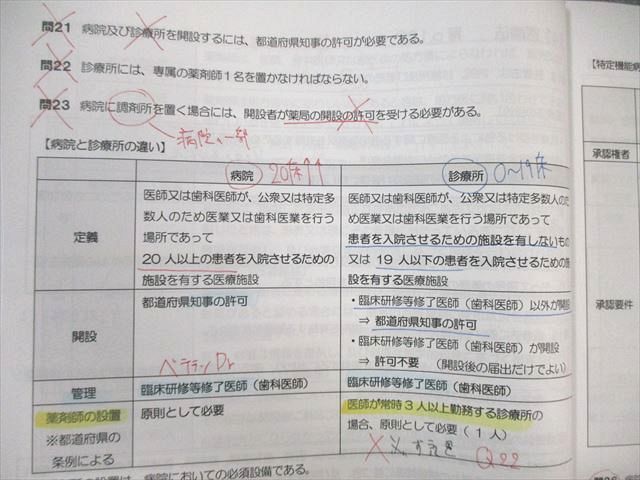 問21 病院及び診療所を開設するには、都道府県知事の許可が必要である。
問22 診療所には、専属の薬剤師1名を置かなければならない。
問23 病院に調剤所を置く場合には、開設者が薬局の開設の許可を受ける必要がある。
病院の一部
【病院と診療所の違い】
病院 20床↑↑
診療所 0〜19床
定義
医師又は歯科医師が、公衆又は特定多
数人のため医業又は歯科医業を行う
場所であって
20人以上の患者を入院させるための
施設を有する医療施設
医師又は歯科医師が、公衆又は特定多数人のた
め医業又は歯科医業を行う場所であって
患者を入院させるための施設を有しないもの
又は 19人以下の患者を入院させるための施
設を有する医療施設
開設
都道府県知事の許可
・臨床研修等修了医師(歯科医師)以外が開設
⇒ 都道府県知事の許可
・臨床研修等修了医師(歯科医師)が開設
⇒ 許可不要 (開設後の届出だけでよい)
ベテランDr
管理
臨床研修等修了医師(歯科医師)
臨床研修等修了医師(歯科医師)
薬剤師の設置
※都道府県の
条例による
原則として必要
医師が常時3人以上勤務する診療所の
場合、原則として必要(1人)
Q22
設置は、病院においての必須設備である。
【特定機能病
承認権者
承認要件